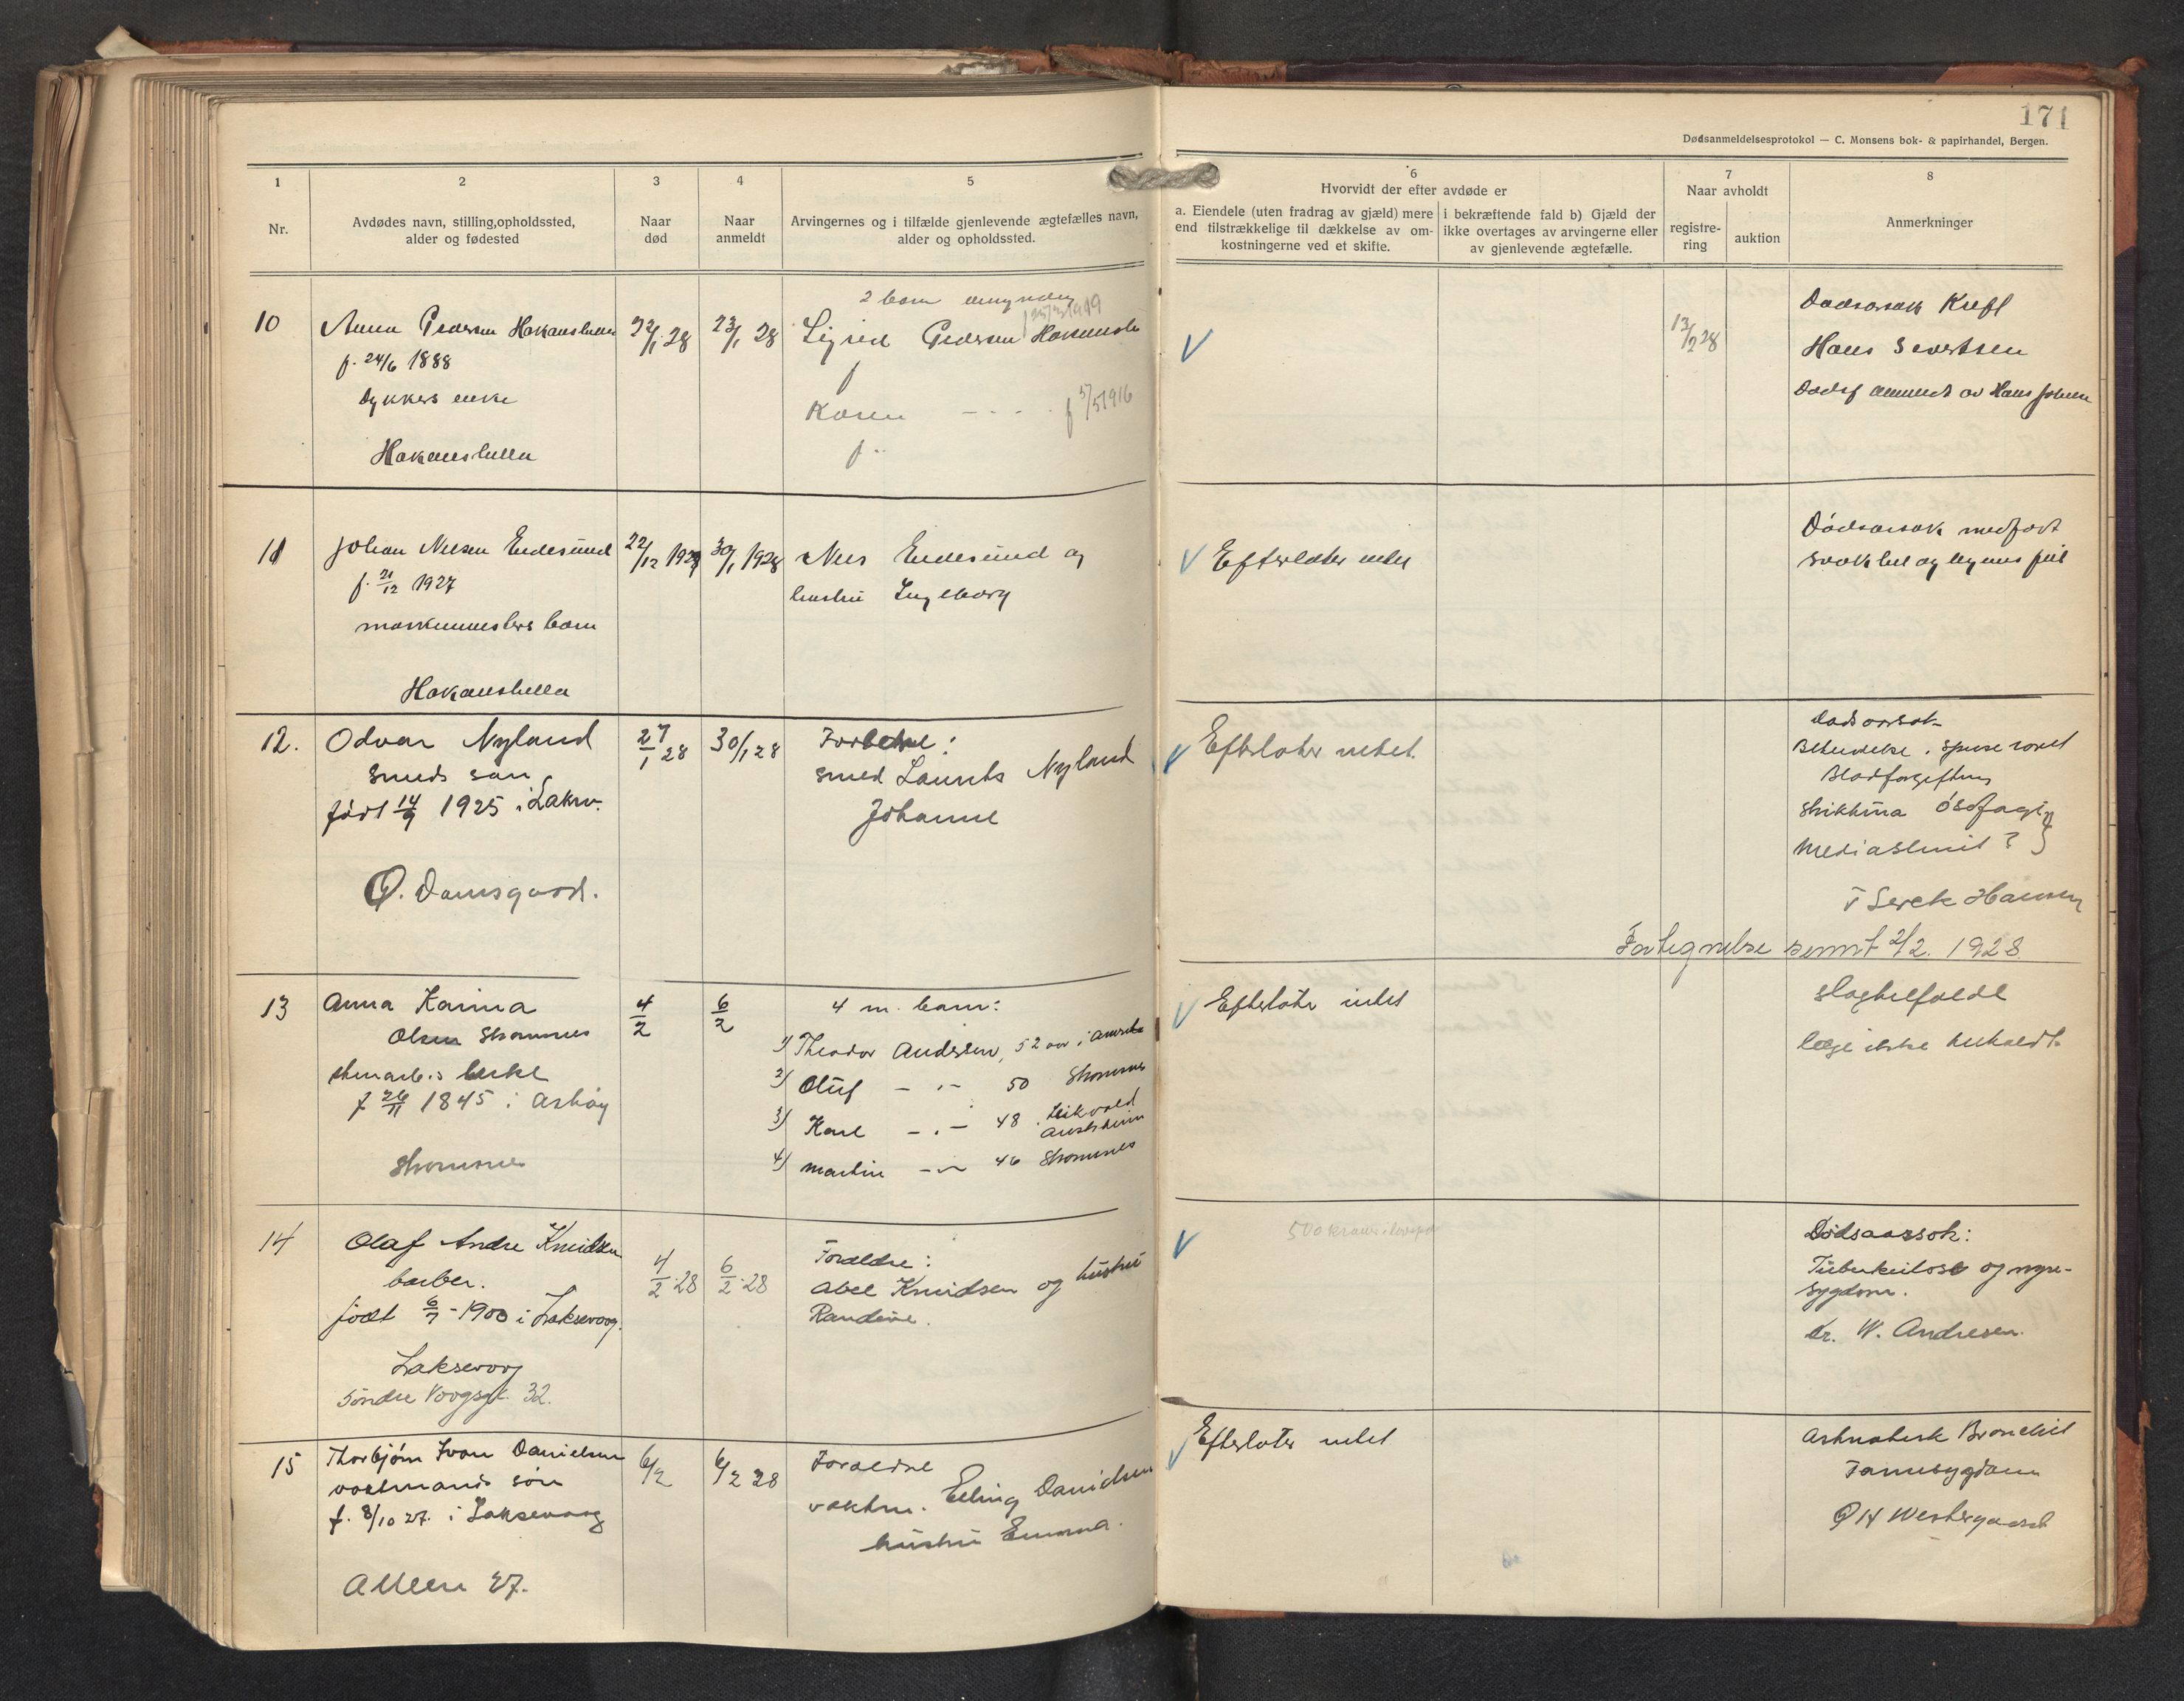 171
Dødsanmeldelsesprotokol — C. Monsens bok- & papirhandel, Bergen.
1
Nr.
2
Avdødes navn, stilling, opholdssted,
alder og fødested
3
Naar
død
4
Naar
anmeldt
5
Arvingernes og i tilfælde gjenlevende ægtefælles navn,
alder og opholdssted.
6
Hvorvidt der efter avdøde er
a. Eiendele (uten fradrag av gjæld) mere
end tilstrækkelige til dækkelse av om-
kostningerne ved et skifte.
i bekræftende fald b) Gjæld der
ikke overtages av arvingerne eller
av gjenlevende ægtefælle.
7
Naar avholdt
registre-
ring
auktion
8
Anmerkninger
10
Anna Pedersen Hakanshella
f. 24/6 1888
Dykkers enke
Hakanshella
22/1 28
23/1 28
2 barn
Sigrid Pedersen
f
Karen
f 5/5 1916
f
13/2 28
Dødsorsak Kreft
Hans Sivertsen
Dødsf anmeldt av Hans
11
Johan Nilsen Eidesund
f. 21/12 1927
maskinmesters barn
Hakanshella
22/12 1927
30/1 1928
Nils Eidesund og
hustru Ingeborg
Efterlater intet
Dødsorsak medfødt
svakhet og
12.
Odvar Nyland
smeds søn
født 14/9 1925 i Laksv.
Ø. Damsgaard.
27/1 28
30/1 28
Forældre:
smed Laurits Nyland
Johanne
Efterlater intet.
Dødsorsak
Betendelse i spiserøret
Blodforgiftning
Mediastinit?
Hansen
Fortegnelse sendt 2/2. 1928
13
Anna Karina
Olsen
enke
f 26/11 1845 i Askøy
4/2
6/2
4 m. barn:
1) Theodor Andersen, 52 aar i Amerika
2) Oluf — „ — 50
3) Karl — „ — 48
4) Martin — „ — 46
Efterlater intet
Slagtilfælde
læge ikke
14
Olaf Andre Knudsen
barber.
født 6/7 - 1900 i Laksevaag.
Laksevaag
Søndre Vaagsgt. 32.
4/2 28
6/2 28
Forældre:
Abel Knudsen og hustru
Randine.
500 kroner i
Dødsaarsak:
Tuberkulose og nyre-
sygdom.
Dr. W. Andresen.
15
Thorbjørn Ivan Danielsen
vaktmands søn
f. 8/10 27. i Laksevaag
Alleen 27.
6/2
6/2 28
Forældre
vaktm. Elling Danielsen
hustru Emma.
Efterlater intet
Astmatisk Bronchit
Westergaard